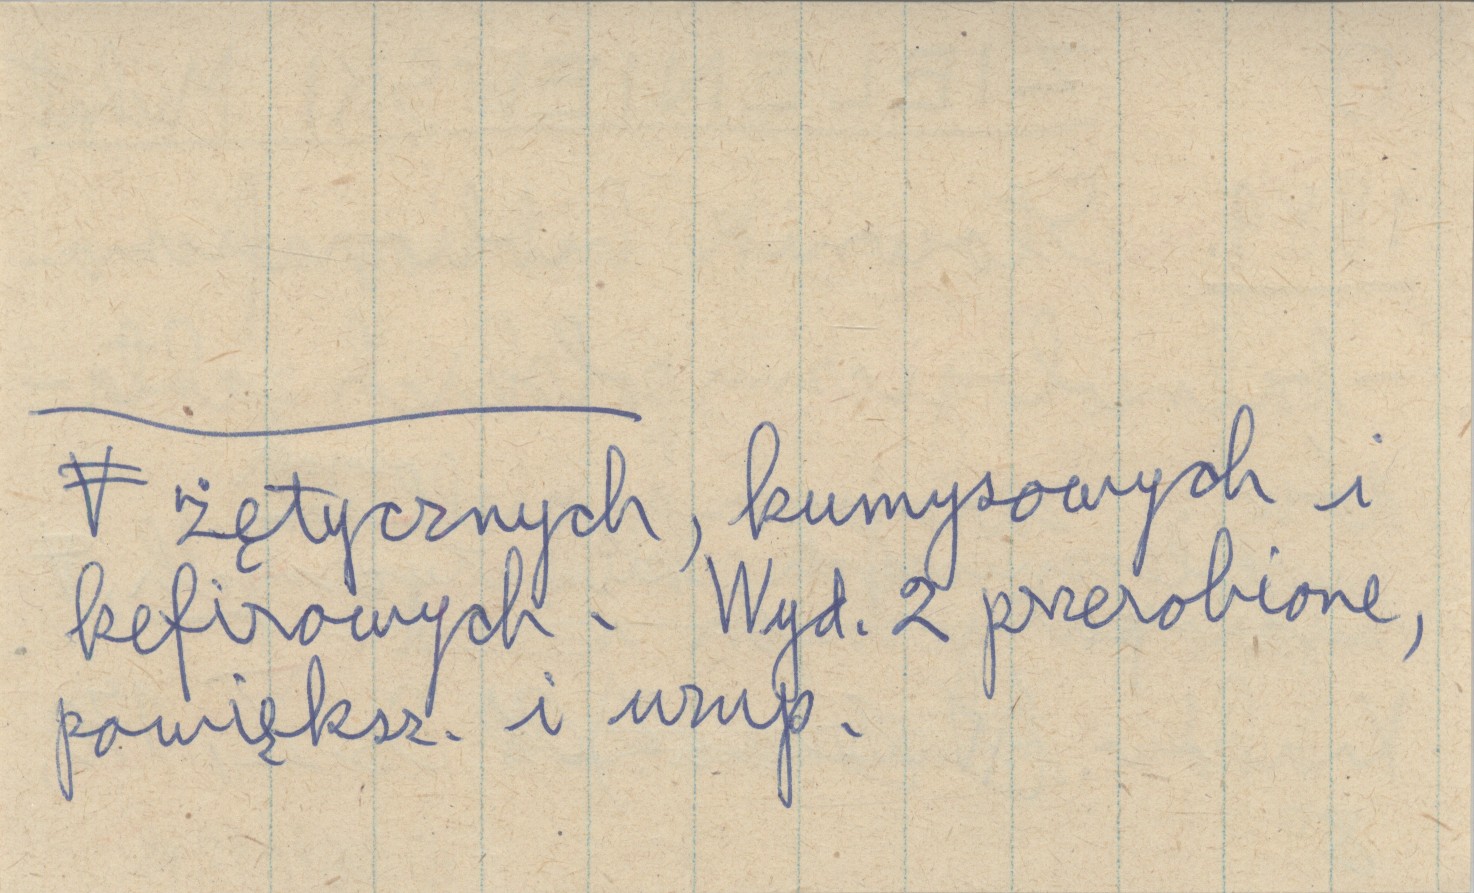 żętycznych, kumysowych i
kefirowych. Wyd. 2 przerobione,
powiększ. i uzup.